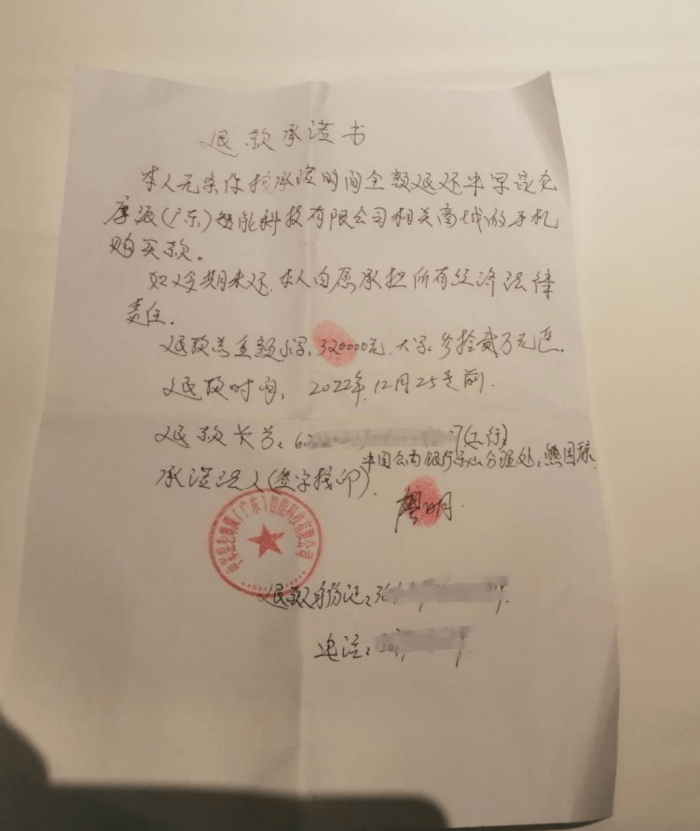 退款承诺书
本人无条件按承诺时间全额退还中字昆仑
摩派(广东)智能科技有限公司相关商城的手机
购买款。
如必期未还,本人自愿承担所有经济法律
责任。
退款总金额小写:320000元,大写:叁拾贰万元正。
退款时间:2022年12月25号前。
退款卡号:62 7(工行)
中国工商银行 分理处:熊国
承诺人(签字按印)
廖明
(广东)智能科技有限公司
退款身份证:
电话: